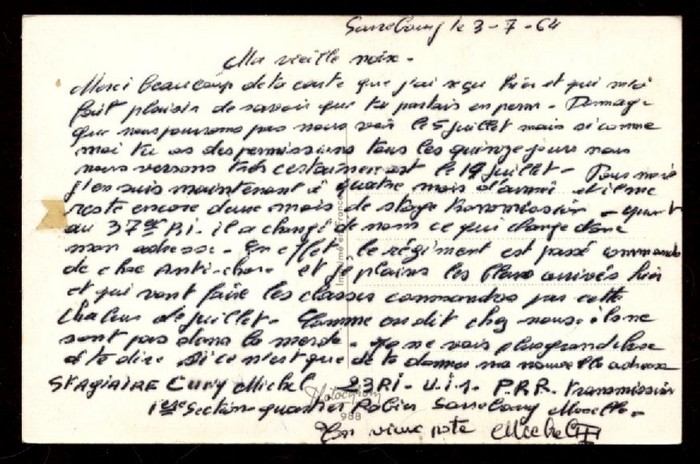 Sarrebourg le 3-7-64
Ma vieille noix.
Merci beaucoup de ta carte que j'ai reçu hier et qui m'a
fait plaisir de savoir que tu partais en perm. Domage
que nous pourrons pas nous voir le 5 juillet mais si comme
moi tu as des permissions tous les quinze jours nous
nous verrons très certainement le 19 juillet. Pour moi
j'en suis maintenant à quatre mois d'armée et il me
reste encore deux mois de stage transmission - quant
au 37ème R.I. il a changé de nom ce qui change donc
mon adresse. En effet le régiment est passé commando
de choc Anti-chars et je plains les blancs arrivés hier
et qui vont faire les classes commandos par cette
chaleur de juillet. Comme on dit chez nous ils ne
sont pas dans la merde. Je ne vois plus grand chose
à te dire si ce n'est que de te donner ma nouvelle adresse
STAGIAIRE Cuny Michel 23 RI. U.I.1. P.P.R. transmission
1ère Section quartier Rabier Sarrebourg Moselle.
988
Ton vieux pote Michel